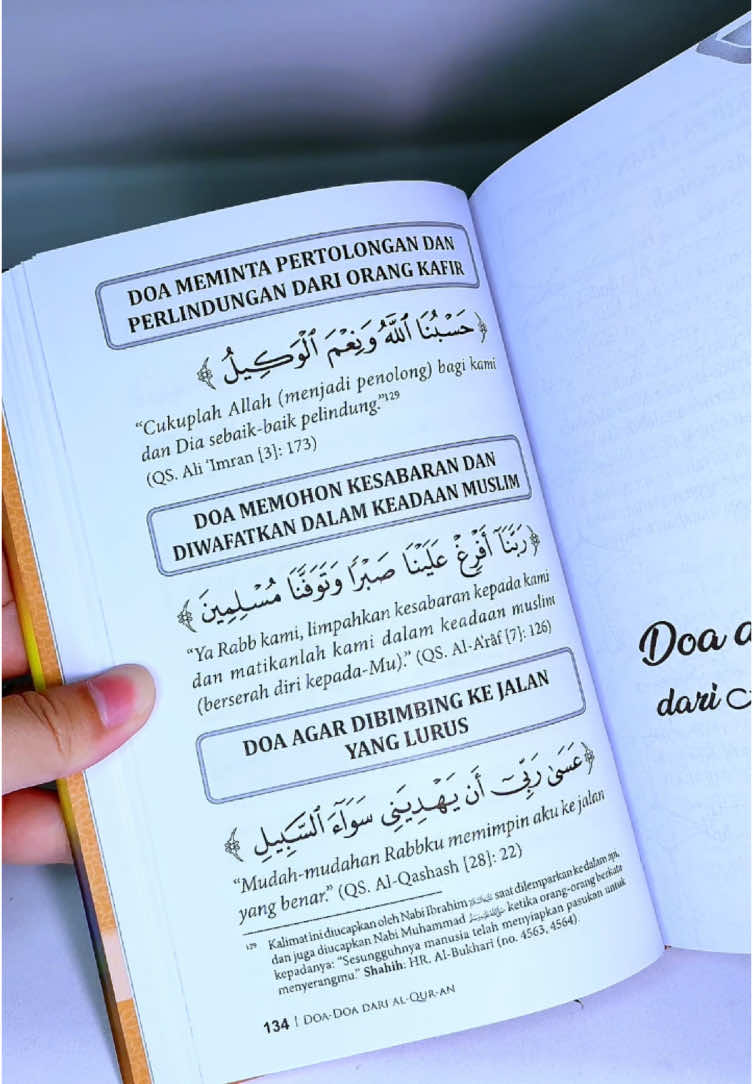 DOA MEMINTA PERTOLONGAN DAN
PERLINDUNGAN DARI ORANG KAFIR
﴿حَسْبُنَا ٱللَّهُ وَنِعْمَ ٱلْوَكِيلُ﴾
“Cukuplah Allah (menjadi penolong) bagi kami
dan Dia sebaik-baik pelindung.”129
(QS. Ali ‘Imran [3]: 173)
DOA MEMOHON KESABARAN DAN
DIWAFATKAN DALAM KEADAAN MUSLIM
﴿رَبَّنَآ أَفْرِغْ عَلَيْنَا صَبْرًا وَتَوَفَّنَا مُسْلِمِينَ﴾
“Ya Rabb kami, limpahkan kesabaran kepada kami
dan matikanlah kami dalam keadaan muslim
(berserah diri kepada-Mu).” (QS. Al-A’râf [7]: 126)
DOA AGAR DIBIMBING KE JALAN
YANG LURUS
﴿عَسَىٰ رَبِّىٓ أَن يَهْدِيَنِى سَوَآءَ ٱلسَّبِيلِ﴾
“Mudah-mudahan Rabbku memimpin aku ke jalan
yang benar.” (QS. Al-Qashash [28]: 22)
129 Kalimat ini diucapkan oleh Nabi Ibrahim saat dilemparkan ke dalam api,
dan juga diucapkan Nabi Muhammad ketika orang-orang berkata
kepadanya: “Sesungguhnya manusia telah menyiapkan pasukan untuk
menyerangmu.” Shahih: HR. Al-Bukhari (no. 4563, 4564).
134 | DOA-DOA DARI AL-QUR-AN
Doa
dari